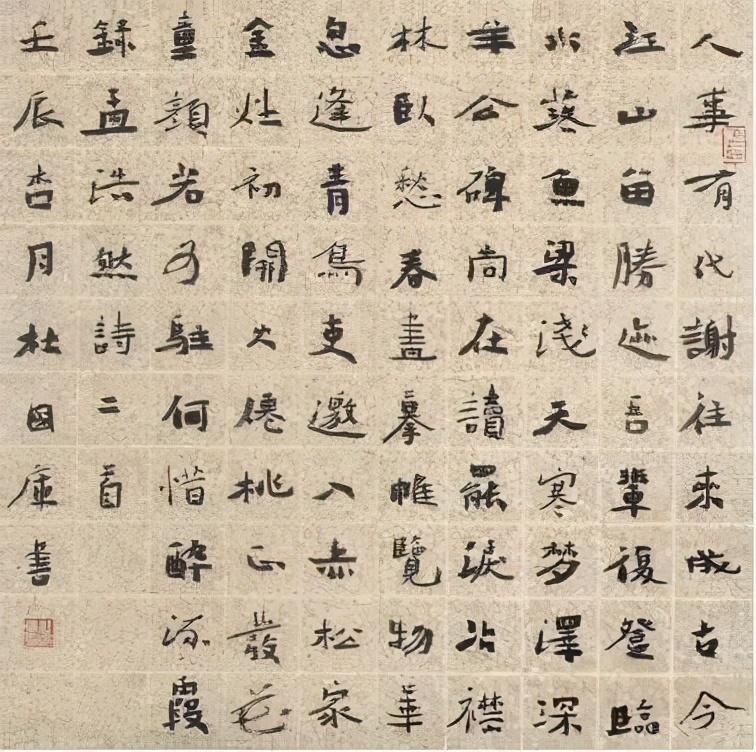 人事有代謝往來成古今
江山留勝迹吾輩復登臨
水落魚梁淺天寒梦澤深
羊公碑尚在讀罷淚沾襟
林臥愁春盡搴帷覽物華
忽逢青鳥吏邀入赤松家
金灶初開火僊桃正發花
童顏若可駐何惜醉流霞
錄孟浩然詩二首
壬辰杏月杜國書